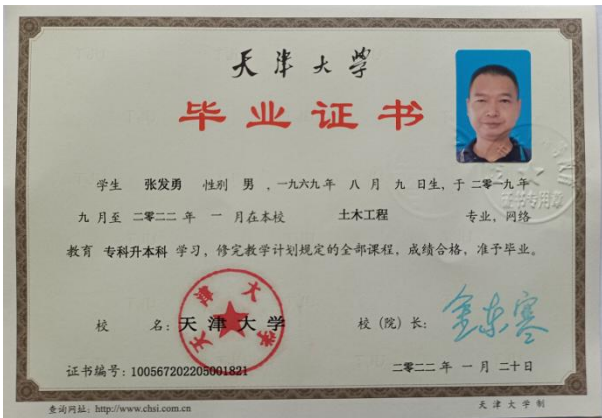 天津大学
毕业证书
学生 张发勇 性别 男 ,一九六九年 八 月 九 日生,于 二零一九年
九 月至 二零二二 年 一 月在本校 土木工程 专业,网络
教育 专科升本科 学习,修完教学计划规定的全部课程,成绩合格,准予毕业。
天津大学
校 名:天津大学 校(院)长:金东寒
证书编号:100567202205001821 二零二二 年 一 月 二十日
查询网址:http://www.chsi.com.cn 天津大学制